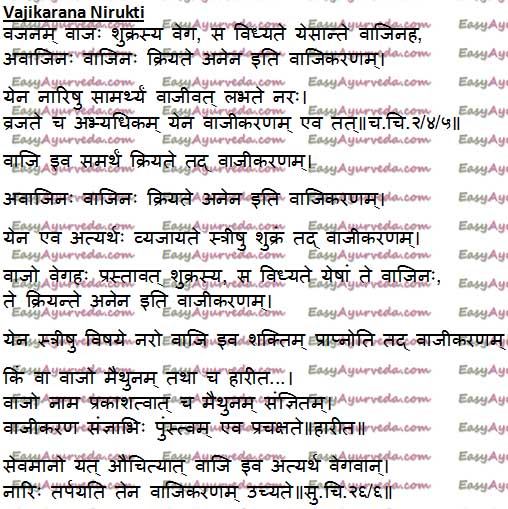 Vajikarana Nirukti
वजनम् वाजः शुक्रस्य वेग, स विध्यते येसान्ते वाजिनह,
अवाजिनः वाजिनः क्रियते अनेन इति वाजिकरणम्।
येन नारिषु सामर्थ्यं वाजीवत् लभते नरः।
व्रजते च अभ्यधिकम् येन वाजीकरणम् एव तत्॥च.चि.२/४/५॥
वाजि इव समर्थं क्रियते तद् वाजीकरणम्।
अवाजिनः वाजिनः क्रियते अनेन इति वाजिकरणम्।
येन एव अत्यर्थः व्यजायते स्त्रीषु शुक्रं तद् वाजीकरणम्।
वाजो वेगहः प्रस्तावत् शुक्रस्य, स विध्यते येषां ते वाजिनः,
ते क्रियन्ते अनेन इति वाजीकरणम्।
येन स्त्रीषु विषये नरो वाजि इव शक्तिम् प्राप्नोति तद् वाजीकरणम्
किं वा वाजो मैथुनम् तथा च हारीत...।
वाजो नाम प्रकाशत्वात् च मैथुनम् संज्ञितम्।
वाजीकरण संज्ञाभिः पुंस्त्वम् एव प्रचक्षते॥हारीत॥
सेवमानो यत् औचित्यात् वाजि इव अत्यर्थ वेगवान्।
नारिः तर्पयति तेन वाजिकरणम् उच्यते॥सु.चि.२६/६॥